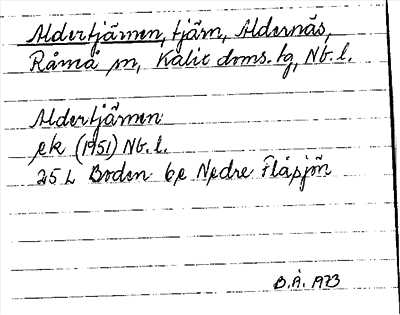 Aldertjärnen, tjärn, Aldernäs,
Råneå sn, Kalix doms. tg, Nb. l.
Aldertjärnen
ek (1951) Nb. l.
25 L Boden be Nedre Flåsjön
B.Å. 1973